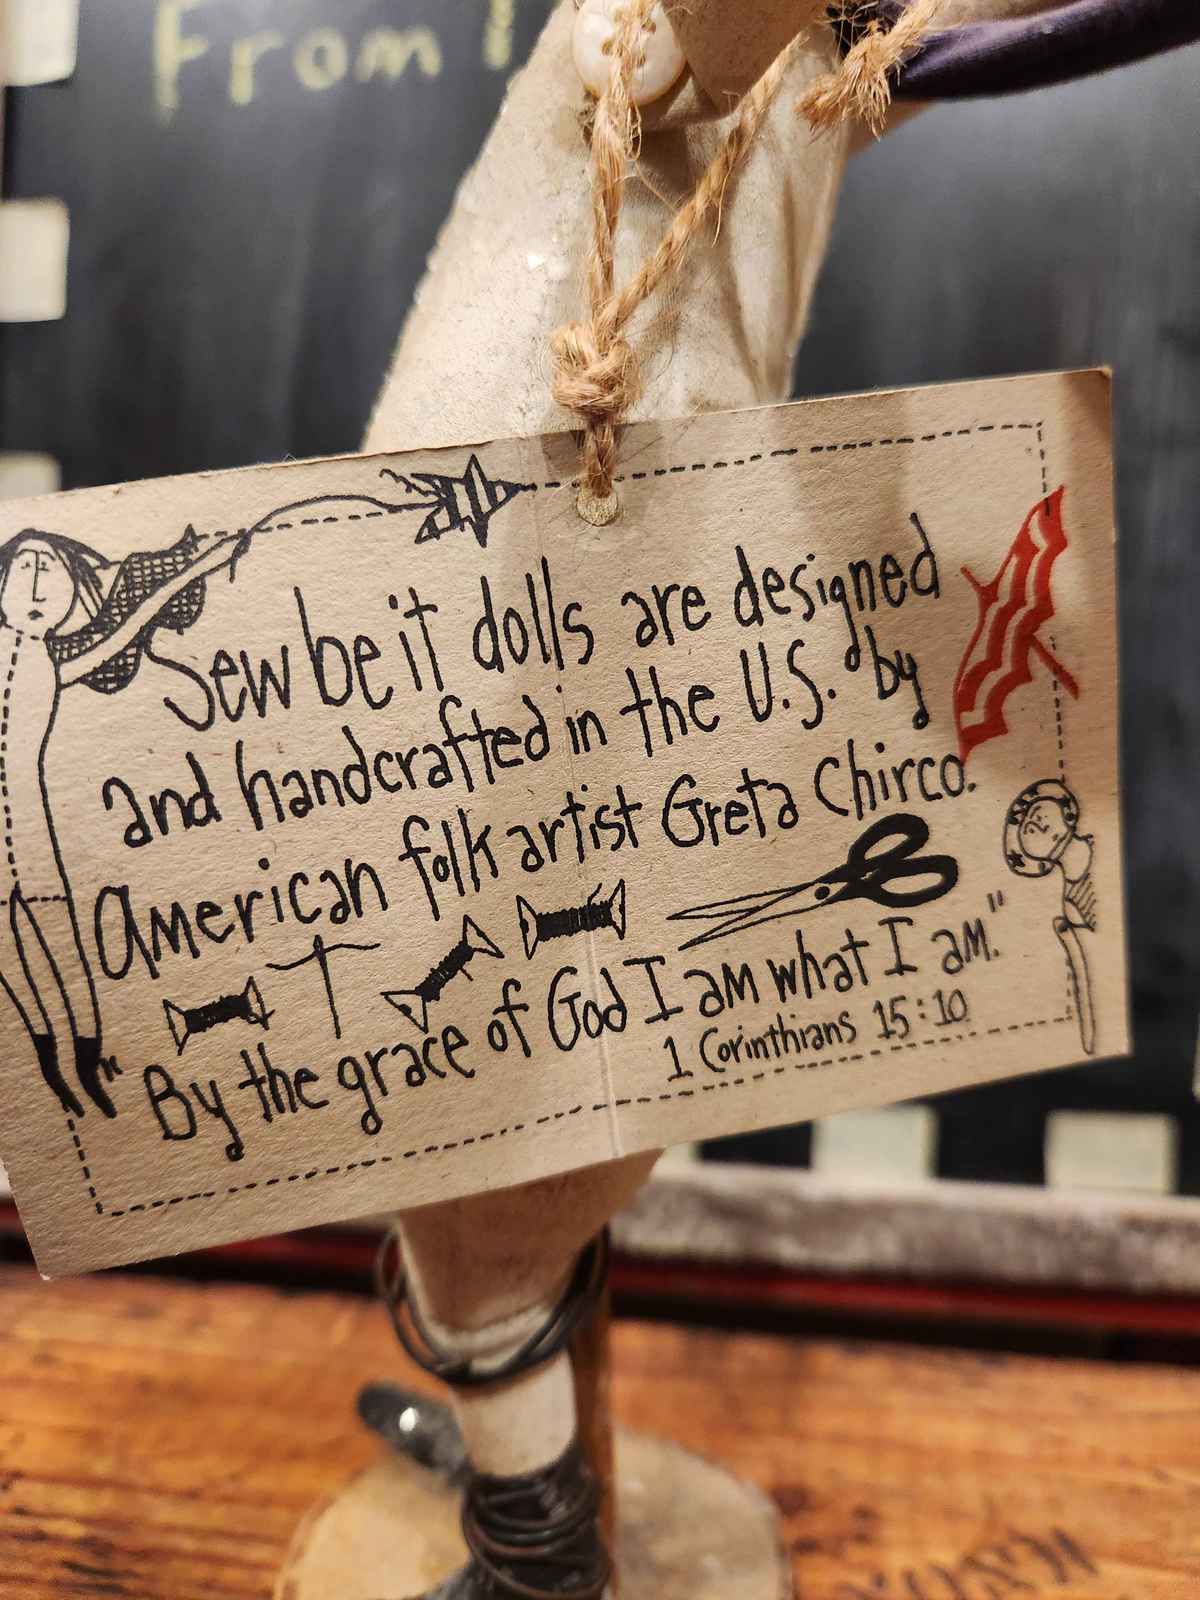 From
Sew be it dolls are designed
and handcrafted in the U.S. by
American folk artist Greta Chirco.
"By the grace of God I am what I am."
1 Corinthians 15:10